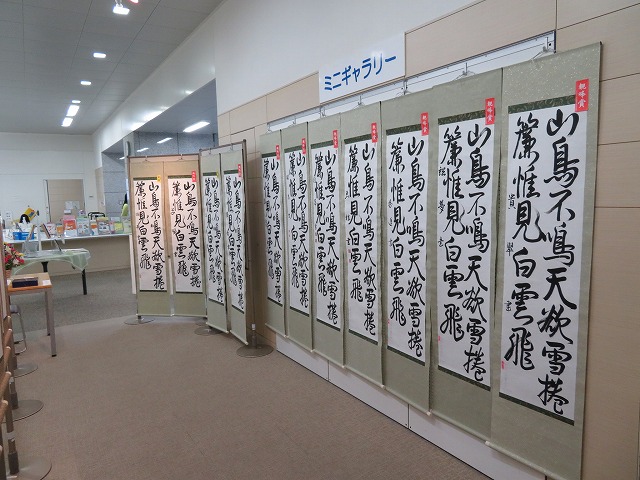 ミニギャラリー
観峰賞
山鳥不鳴天欲雪捲
簾惟見白雲飛
観峰賞
山鳥不鳴天欲雪捲
簾惟見白雲飛
観峰賞
山鳥不鳴天欲雪捲
簾惟見白雲飛
山鳥不鳴天欲雪捲
簾惟見白雲飛
山鳥不鳴天欲雪捲
簾惟見白雲飛
山鳥不鳴天欲雪捲
簾惟見白雲飛
山鳥不鳴天欲雪捲
簾惟見白雲飛
山鳥不鳴天欲雪捲
簾惟見白雲飛
山鳥不鳴天欲雪捲
簾惟見白雲飛
山鳥不鳴天欲雪捲
簾惟見白雲飛
山鳥不鳴天欲雪捲
簾惟見白雲飛